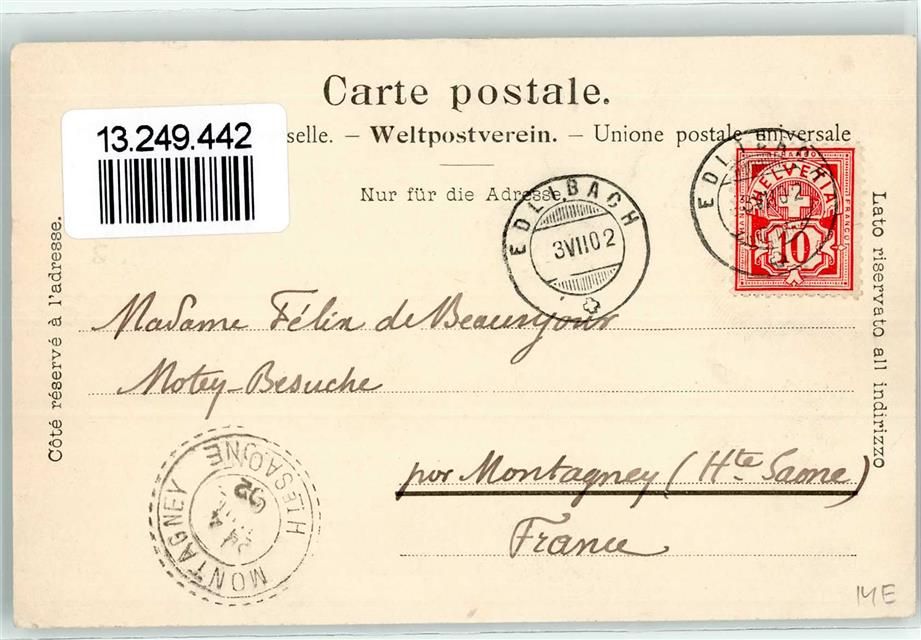 Carte postale.
13.249.442
selle. – Weltpostverein. – Unione postale universale
Nur für die Adresse.
EDLIBACH
3 VII 02
EDLIBACH
02
HELVETIA
FRANCO
10
Côté réservé à l'adresse.
Lato riservato all indirizzo
Madame Félix de Beauséjour
Motey-Besuche
por Montagney (Hte Saone)
France
MONTAGNEY
HTE SAONE
02
14E